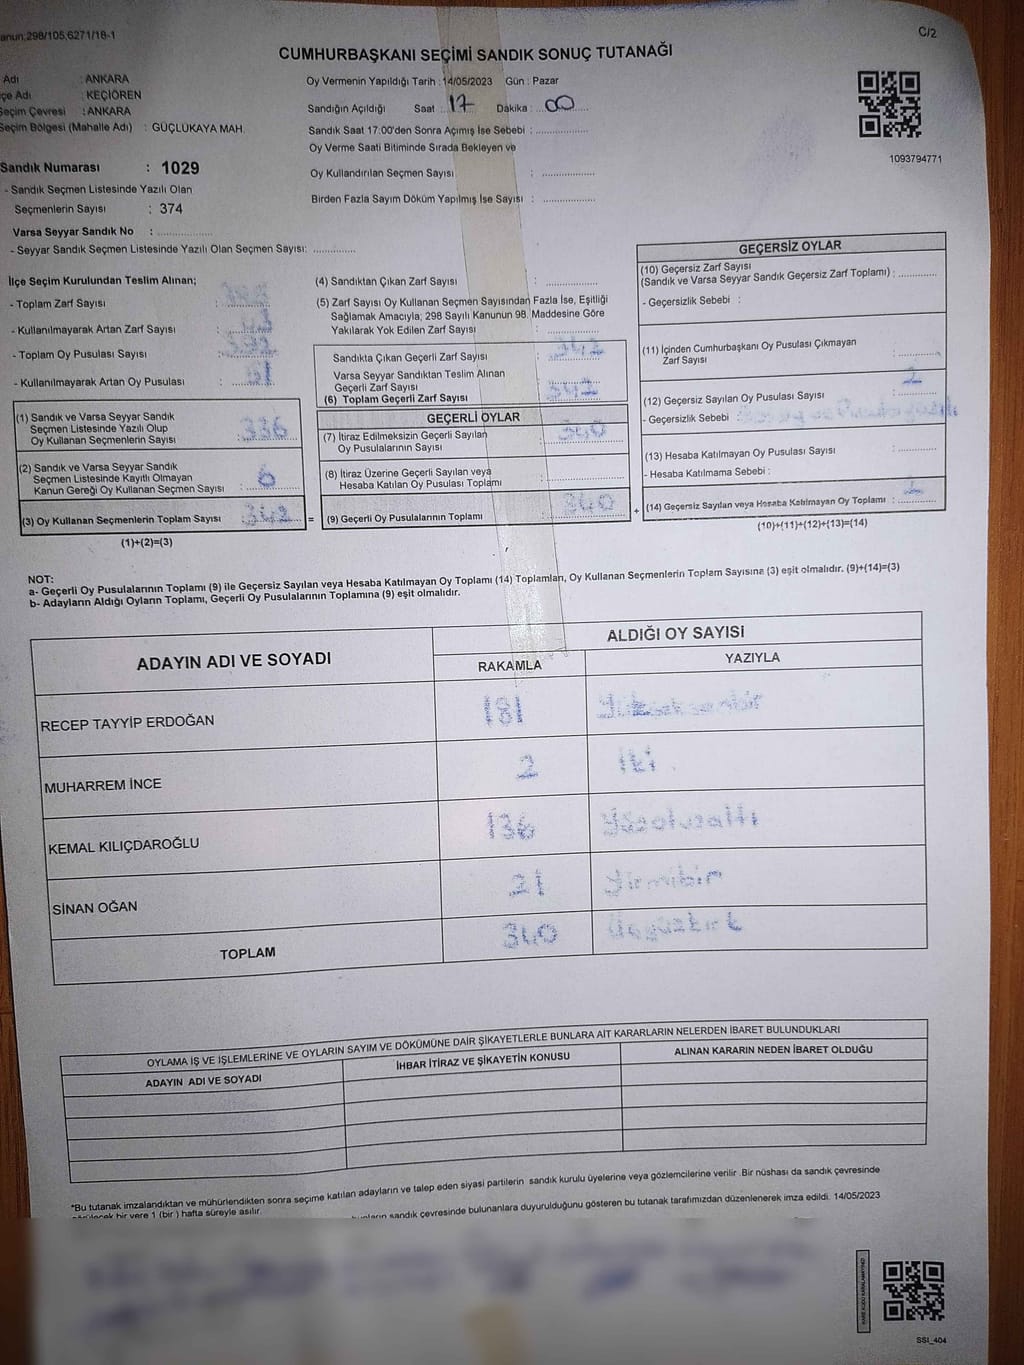 anun;298/105,6271/18-1
C/2
CUMHURBAŞKANI SEÇİMİ SANDIK SONUÇ TUTANAĞI
Adı : ANKARA
çe Adı : KEÇİÖREN
Seçim Çevresi : ANKARA
Seçim Bölgesi (Mahalle Adı) : GÜÇLÜKAYA MAH.
Oy Vermenin Yapıldığı Tarih : 14/05/2023 Gün : Pazar
Sandığın Açıldığı Saat : 17 Dakika : 00
Sandık Saat 17:00'den Sonra Açımış İse Sebebi :
Oy Verme Saati Bitiminde Sırada Bekleyen ve
Oy Kullandırılan Seçmen Sayısı :
Birden Fazla Sayım Döküm Yapılmış İse Sayısı :
1093794771
Sandık Numarası : 1029
- Sandık Seçmen Listesinde Yazılı Olan
Seçmenlerin Sayısı : 374
Varsa Seyyar Sandık No :
- Seyyar Sandık Seçmen Listesinde Yazılı Olan Seçmen Sayısı:
İlçe Seçim Kurulundan Teslim Alınan;
- Toplam Zarf Sayısı :
- Kullanılmayarak Artan Zarf Sayısı :
- Toplam Oy Pusulası Sayısı :
- Kullanılmayarak Artan Oy Pusulası :
(1) Sandık ve Varsa Seyyar Sandık
Seçmen Listesinde Yazılı Olup
Oy Kullanan Seçmenlerin Sayısı : 336
(2) Sandık ve Varsa Seyyar Sandık
Seçmen Listesinde Kayıtlı Olmayan
Kanun Gereği Oy Kullanan Seçmen Sayısı : 6
(3) Oy Kullanan Seçmenlerin Toplam Sayısı 342
(1)+(2)=(3)
=
(4) Sandıktan Çıkan Zarf Sayısı :
(5) Zarf Sayısı Oy Kullanan Seçmen Sayısından Fazla İse, Eşitliği
Sağlamak Amacıyla; 298 Sayılı Kanunun 98. Maddesine Göre
Yakılarak Yok Edilen Zarf Sayısı :
Sandıkta Çıkan Geçerli Zarf Sayısı : 342
Varsa Seyyar Sandıktan Teslim Alınan
Geçerli Zarf Sayısı :
(6) Toplam Geçerli Zarf Sayısı : 342
GEÇERLİ OYLAR
(7) İtiraz Edilmeksizin Geçerli Sayılan : 340
Oy Pusulalarının Sayısı
(8) İtiraz Üzerine Geçerli Sayılan veya
Hesaba Katılan Oy Pusulası Toplamı :
(9) Geçerli Oy Pusulalarının Toplamı : 340
+
GEÇERSİZ OYLAR
(10) Geçersiz Zarf Sayısı
(Sandık ve Varsa Seyyar Sandık Geçersiz Zarf Toplamı) :
- Geçersizlik Sebebi :
(11) İçinden Cumhurbaşkanı Oy Pusulası Çıkmayan
Zarf Sayısı :
(12) Geçersiz Sayılan Oy Pusulası Sayısı : 2
- Geçersizlik Sebebi :
(13) Hesaba Katılmayan Oy Pusulası Sayısı :
- Hesaba Katılmama Sebebi :
(14) Geçersiz Sayılan veya Hesaba Katılmayan Oy Toplamı : 2
(10)+(11)+(12)+(13)=(14)
NOT:
a- Geçerli Oy Pusulalarının Toplamı (9) ile Geçersiz Sayılan veya Hesaba Katılmayan Oy Toplamı (14) Toplamları, Oy Kullanan Seçmenlerin Toplam Sayısına (3) eşit olmalıdır. (9)+(14)=(3)
b- Adayların Aldığı Oyların Toplamı, Geçerli Oy Pusulalarının Toplamına (9) eşit olmalıdır.
ADAYIN ADI VE SOYADI
ALDIĞI OY SAYISI
RAKAMLA YAZIYLA
RECEP TAYYİP ERDOĞAN 181 Yüzseksenbir
MUHARREM İNCE 2 İki
KEMAL KILIÇDAROĞLU 136 Yüzotuzaltı
SİNAN OĞAN 21 Yirmibir
TOPLAM 340 Üçyüzkırk
OYLAMA İŞ VE İŞLEMLERİNE VE OYLARIN SAYIM VE DÖKÜMÜNE DAİR ŞİKAYETLERLE BUNLARA AİT KARARLARIN NELERDEN İBARET BULUNDUKLARI
ADAYIN ADI VE SOYADI İHBAR İTİRAZ VE ŞİKAYETİN KONUSU ALINAN KARARIN NEDEN İBARET OLDUĞU
*Bu tutanak imzalandıktan ve mühürlendikten sonra seçime katılan adayların ve talep eden siyasi partilerin sandık kurulu üyelerine veya gözlemcilerine verilir. Bir nüshası da sandık çevresinde
görülecek bir yere 1 (bir) hafta süreyle asılır.
sandık çevresinde bulunanlara duyurulduğunu gösteren bu tutanak tarafımızdan düzenlenerek imza edildi. 14/05/2023
SSI_404